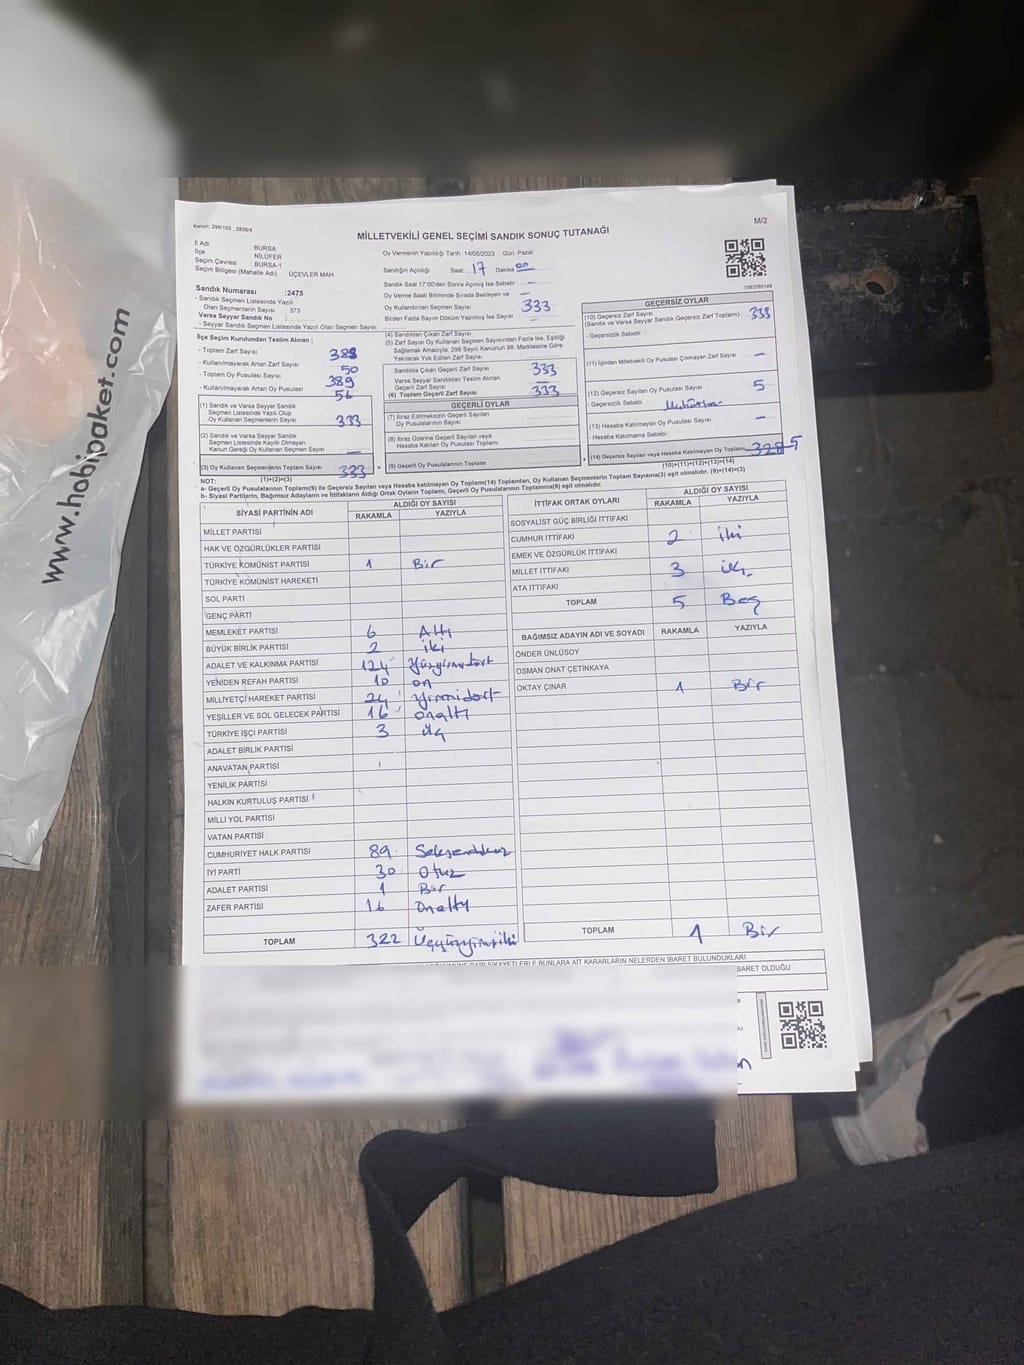 www.hobipaket.com
Kanun: 298/105 , 2839/4
M/2
MİLLETVEKİLİ GENEL SEÇİMİ SANDIK SONUÇ TUTANAĞI
İl Adı : BURSA
İlçe : NİLÜFER
Seçim Çevresi : BURSA-1
Seçim Bölgesi (Mahalle Adı) : ÜÇEVLER MAH
Oy Vermenin Yapıldığı Tarih :14/05/2023 Gün: Pazar
Sandığın Açıldığı Saat: 17 Dakika 00
Sandık Numarası :2475
- Sandık Seçmen Listesinde Yazılı
Olan Seçmenlerin Sayısı : 373
Varsa Seyyar Sandık No :
- Seyyar Sandık Seçmen Listesinde Yazılı Olan Seçmen Sayısı:
Sandık Saat 17:00'den Sonra Açılmış İse Sebebi : -
Oy Verme Saati Bitiminde Sırada Bekleyen ve
Oy Kullandırılan Seçmen Sayısı 333
Birden Fazla Sayım Döküm Yapılmış İse Sayısı :
İlçe Seçim Kurulundan Teslim Alınan ;
- Toplam Zarf Sayısı
- Kullanılmayarak Artan Zarf Sayısı 50
- Toplam Oy Pusulası Sayısı 389
- Kullanılmayarak Artan Oy Pusulası 56
(1) Sandık ve Varsa Seyyar Sandık
Seçmen Listesinde Yazılı Olup
Oy Kullanan Seçmenlerin Sayısı 333
(2) Sandık ve Varsa Seyyar Sandık
Seçmen Listesinde Kayıtlı Olmayan
Kanun Gereği Oy Kullanan Seçmen Sayısı -
(3) Oy Kullanan Seçmenlerin Toplam Sayısı 333
(1)+(2)=(3)
(4) Sandıktan Çıkan Zarf Sayısı
(5) Zarf Sayısı Oy Kullanan Seçmen Sayısından Fazla İse, Eşitliği
Sağlamak Amacıyla; 298 Sayılı Kanunun 98. Maddesine Göre
Yakılarak Yok Edilen Zarf Sayısı
Sandıkta Çıkan Geçerli Zarf Sayısı 333
Varsa Seyyar Sandıktan Teslim Alınan
Geçerli Zarf Sayısı -
(6) Toplam Geçerli Zarf Sayısı 333
GEÇERLİ OYLAR
(7) İtiraz Edilmeksizin Geçerli Sayılan
Oy Pusulası Sayısı
(8) İtiraz Üzerine Geçerli Sayılan veya
Hesaba Katılan Oy Pusulası Toplamı
(9) Geçerli Oy Pusulalarının Toplamı
GEÇERSİZ OYLAR
(10) Geçersiz Zarf Sayısı 333
(Sandık ve Varsa Seyyar Sandık Geçersiz Zarf Toplamı)
- Geçersizlik Sebebi :
(11) İçinden Milletvekili Oy Pusulası Çıkmayan Zarf Sayısı -
(12) Geçersiz Sayılan Oy Pusulası Sayısı 5
- Geçersizlik Sebebi :
(13) Hesaba Katılmayan Oy Pusulası Sayısı -
- Hesaba Katılmama Sebebi :
(14) Geçersiz Sayılan veya Hesaba Katılmayan Oy Toplamı 328 5
(10)+(11)+(12)+(13)=(14)
NOT:
a- Geçerli Oy Pusulalarının Toplamı(9) ile Geçersiz Sayılan veya Hesaba Katılmayan Oy Toplamı(14) Toplamları, Oy Kullanan Seçmenlerin Toplam Sayısına(3) eşit olmalıdır. (9)+(14)=(3)
b- Siyasi Partilerin, Bağımsız Adayların ve İttifakların Aldığı Ortak Oyların Toplamı, Geçerli Oy Pusulalarının Toplamına(9) eşit olmalıdır.
SİYASİ PARTİNİN ADI ALDIĞI OY SAYISI
RAKAMLA YAZIYLA
MİLLET PARTİSİ
HAK VE ÖZGÜRLÜKLER PARTİSİ
TÜRKİYE KOMÜNİST PARTİSİ 1 Bir
TÜRKİYE KOMÜNİST HAREKETİ
SOL PARTİ
GENÇ PARTİ
MEMLEKET PARTİSİ 6 Altı
BÜYÜK BİRLİK PARTİSİ 2 iki
ADALET VE KALKINMA PARTİSİ 124 Yüzyirmidört
YENİDEN REFAH PARTİSİ 10 on
MİLLİYETÇİ HAREKET PARTİSİ 24 Yirmidört
YEŞİLLER VE SOL GELECEK PARTİSİ 16 onaltı
TÜRKİYE İŞÇİ PARTİSİ 3 üç
ADALET BİRLİK PARTİSİ
ANAVATAN PARTİSİ
YENİLİK PARTİSİ
HALKIN KURTULUŞ PARTİSİ
MİLLİ YOL PARTİSİ
VATAN PARTİSİ
CUMHURİYET HALK PARTİSİ 89 Seksendokuz
İYİ PARTİ 30 Otuz
ADALET PARTİSİ 1 Bir
ZAFER PARTİSİ 16 Onaltı
TOPLAM 322 Üçyüzyirmiiki
İTTİFAK ORTAK OYLARI ALDIĞI OY SAYISI
RAKAMLA YAZIYLA
SOSYALİST GÜÇ BİRLİĞİ İTTİFAKI
CUMHUR İTTİFAKI 2 iki
EMEK VE ÖZGÜRLÜK İTTİFAKI
MİLLET İTTİFAKI 3 üç
ATA İTTİFAKI
TOPLAM 5 Beş
BAĞIMSIZ ADAYIN ADI VE SOYADI RAKAMLA YAZIYLA
ÖNDER ÜNLÜSOY
OSMAN ONAT ÇETİNKAYA
OKTAY ÇINAR 1 Bir
TOPLAM 1 Bir
DÖKÜMÜNE DAİR ŞİKAYETLERLE BUNLARA AİT KARARLARIN NELERDEN İBARET BULUNDUKLARI
İBARET OLDUĞU